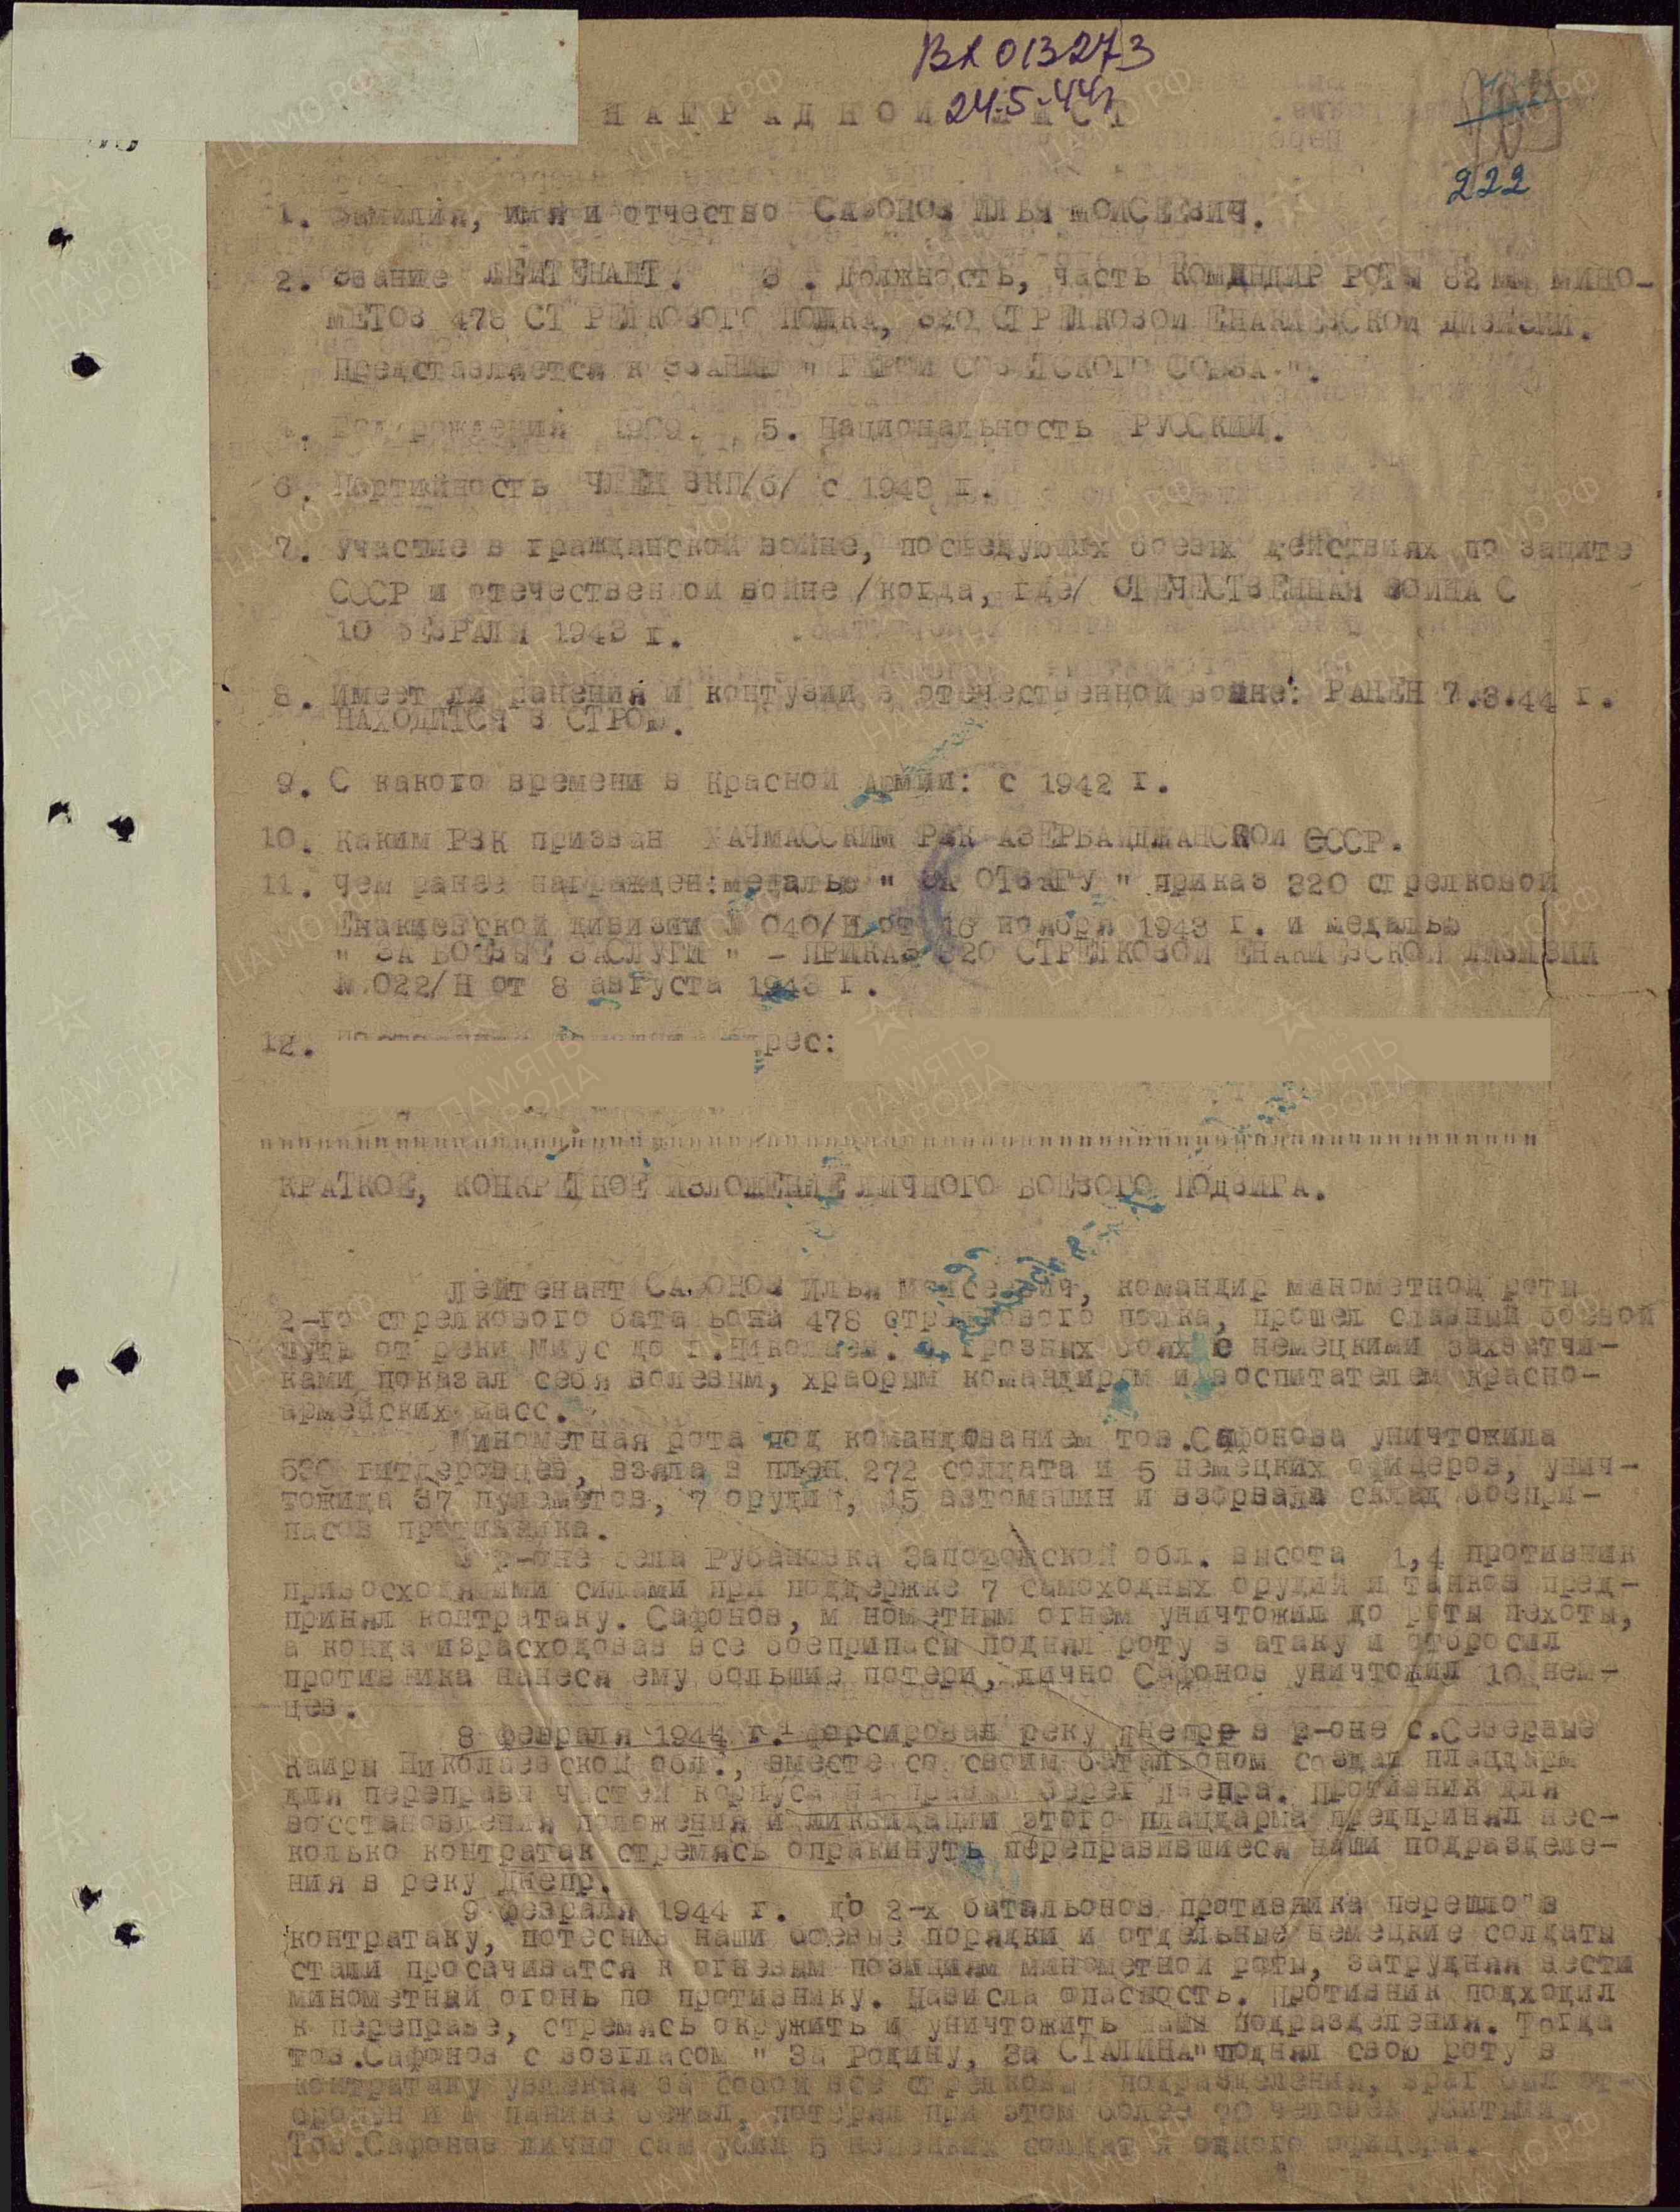 ВХ 013273
24-5-44г
НАГРАДНОЙ ЛИСТ
222
1. Фамилия, имя и отчество САФОНОВ ИЛЬЯ МОИСЕЕВИЧ.
2. Звание ЛЕЙТЕНАНТ. 3. Должность, часть КОМАНДИР РОТЫ 82 мм МИНО-
МЕТОВ 478 СТРЕЛКОВОГО ПОЛКА, 320 СТРЕЛКОВОЙ ЕНАКИЕВСКОЙ ДИВИЗИИ.
Представляется к ЗВАНИЮ " ГЕРОЙ СОВЕТСКОГО СОЮЗА ".
4. Год рождения 1909. 5. Национальность РУССКИЙ.
6. Партийность ЧЛЕН ВКП/б/ с 1943 г.
7. Участие в гражданской войне, последующих боевых действиях по защите
СССР и отечественной войне /когда, где/ ОТЕЧЕСТВЕННАЯ ВОЙНА С
10 ФЕВРАЛЯ 1943 г.
8. Имеет ли ранения и контузии в отечественной войне: РАНЕН 7.3.44 г.
НАХОДИТСЯ В СТРОЮ.
9. С какого времени в Красной Армии: с 1942 г.
10. Каким РВК призван ХАЧМАССКИМ РВК АЗЕРБАЙДЖАНСКОЙ СССР.
11. Чем ранее награжден: медалью " ЗА ОТВАГУ " приказ 320 стрелковой
Енакиевской дивизии № 040/Н от 16 ноября 1943 г. и медалью
" ЗА БОЕВЫЕ ЗАСЛУГИ " - ПРИКАЗ 320 СТРЕЛКОВОЙ ЕНАКИЕВСКОЙ ДИВИЗИИ
№ 022/Н от 8 августа 1943 г.
12. адрес:
КРАТКОЕ, КОНКРЕТНОЕ ИЗЛОЖЕНИЕ ЛИЧНОГО БОЕВОГО ПОДВИГА.
Лейтенант САФОНОВ Илья Моисеевич, командир минометной роты
2-го стрелкового батальона 478 стрелкового полка, прошел славный боевой
путь от реки Миус до г.Николаев. В грозных боях с немецкими захватчи-
ками показал себя волевым, храбрым командиром и воспитателем красно-
армейских масс.
Минометная рота под командованием тов.Сафонова уничтожила
гитлеровцев, взяла в плен 272 солдата и 5 немецких офицеров, унич-
тожила 37 пулеметов, 7 орудий, 15 автомашин и взорвала склад боепри-
пасов противника.
В р-оне села Рубановка Запорожской обл. высота 1,4 противник
привосходящими силами при поддержке 7 самоходных орудий и танков пред-
принял контратаку. Сафонов, минометным огнем уничтожил до роты пехоты,
а когда израсходовав все боеприпасы поднял роту в атаку и отбросил
противника нанеся ему большие потери, лично Сафонов уничтожил 10 нем-
цев.
8 февраля 1944 г. форсировал реку Днепр в р-оне с.Северные
Каиры Николаевской обл., вместе со своим батальоном создал плацдарм
для переправы частей корпуса на правый берег Днепра. Противник для
восстановления положения и ликвидации этого плацдарма предпринял нес-
колько контратак стремясь опракинуть переправившиеся наши подразделе-
ния в реку Днепр.
9 февраля 1944 г. до 2-х батальонов противника перешло в
контратаку, потеснив наши боевые порядки и отдельные немецкие солдаты
стали просачиватся к огневым позициям минометной роты, затрудняя вести
минометный огонь по противнику. Нависла опасность. Противник подходил
к переправе, стремясь окружить и уничтожить наши подразделения. Тогда
тов.Сафонов с возгласом " За Родину, За СТАЛИНА" поднял свою роту в
контратаку увлекая за собой все стрелковые подразделения, враг был от-
брошен и в панике бежал, потеряв при этом более человек убитыми.
Тов.Сафонов лично сам убил 5 немецких солдат и одного офицера.